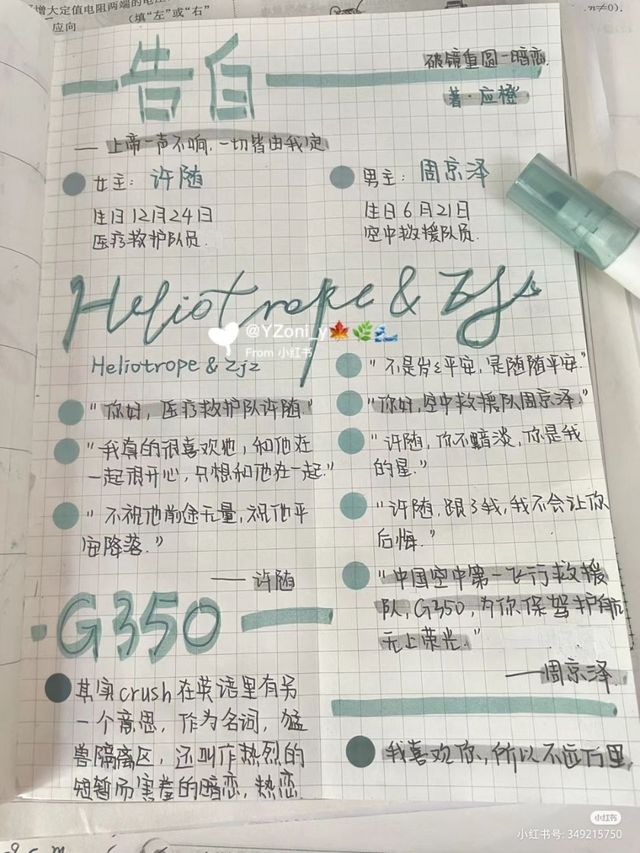 增大定值电阻两端的电
应向 (填“左”或“右”
n≠0).
一告白
破镜重圆一暗恋
著·应橙
—— 上帝一声不响,一切皆由我定
女主: 许随
生日12月24日
医疗救护队员
男主: 周京泽
生日6月21日
空中救援队员
Heliotrope & Zjz
@YZoni_y🍁🌿🌊
From 小红书
Heliotrope & Zjz
"你好,医疗救护队许随"
"我真的很喜欢他,和他在
一起很开心,只想和他在一起."
"不祝他前途无量,祝他平
安降落."
——许随
"不是岁岁平安,是随随平安."
"你好,空中救援队周京泽."
"许随,你不黯淡,你是我
的星."
"许随,跟了我,我不会让你
后悔."
"中国空中第一飞行救援
队,G350,为你保驾护航
无上荣光."
——周京泽
G350
其实crush在英语里有另
一个意思,作为名词,猛
兽隔离区,还叫作热烈的
短暂而害羞的暗恋,热恋
我喜欢你,所以不远万里,
小红书
小红书号: 349215750